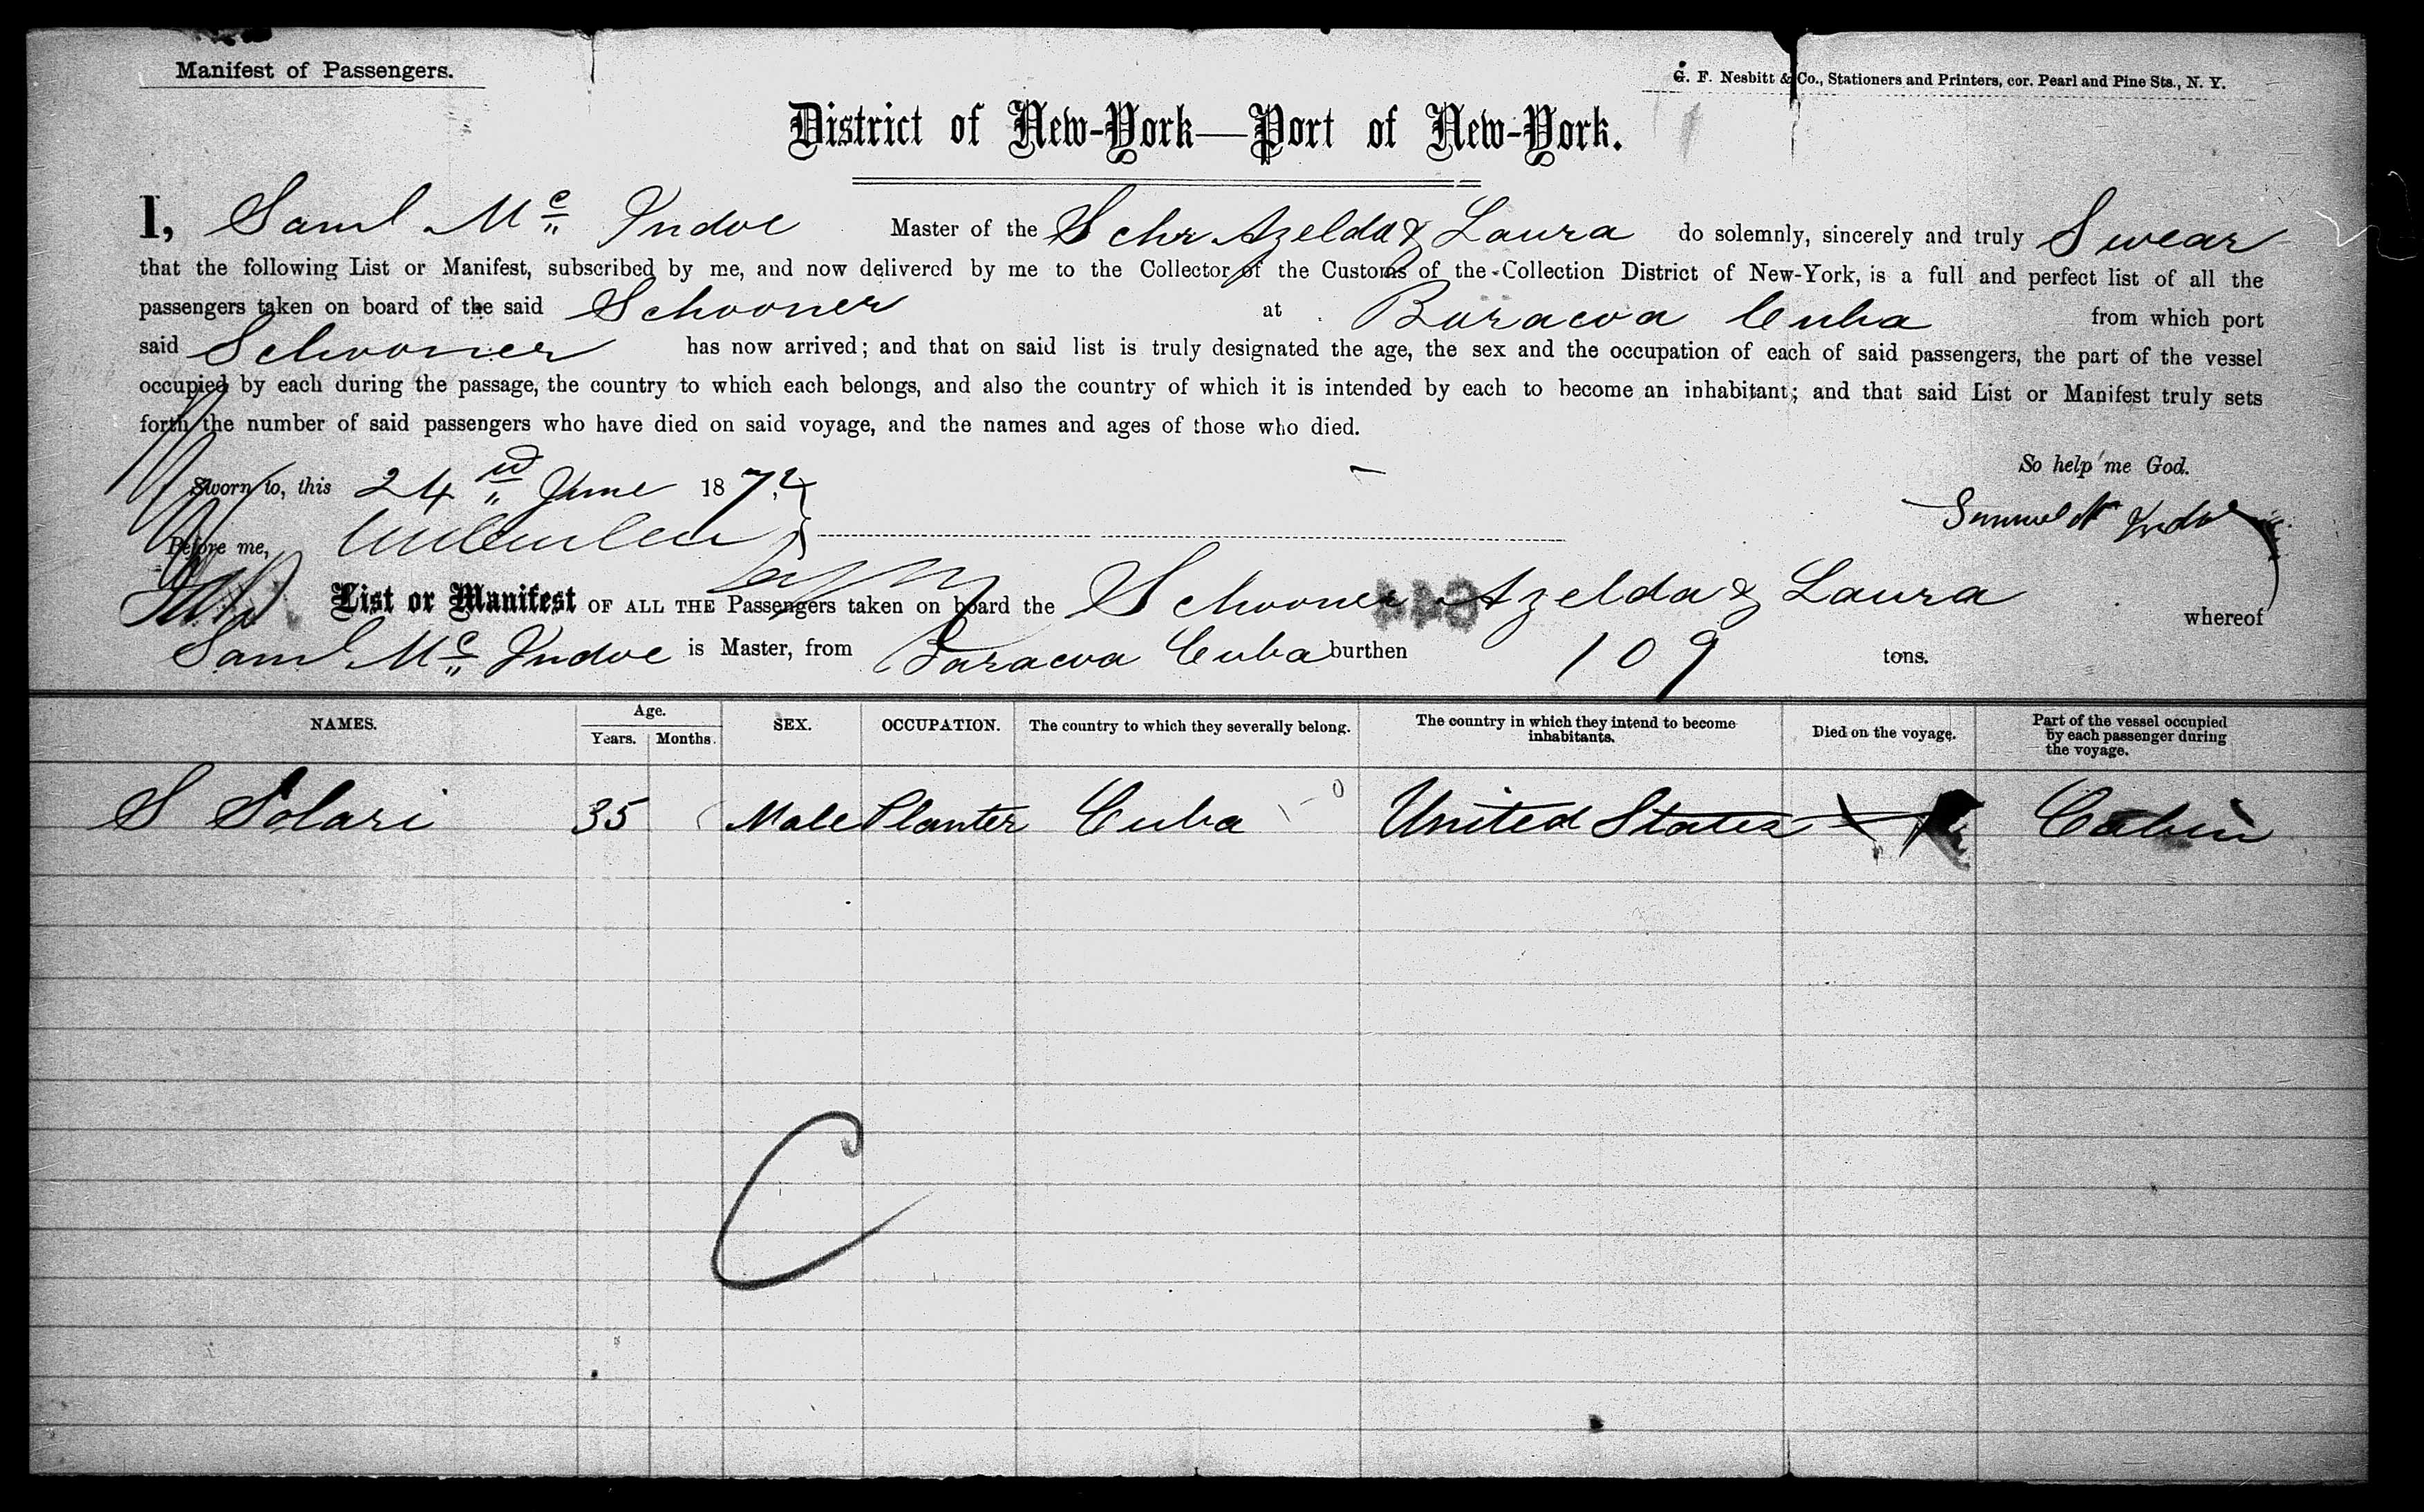 Manifest of Passengers.
G. F. Nesbitt & Co., Stationers and Printers, cor. Pearl and Pine Sts., N. Y.
District of New-York—Port of New-York.
I, Saml Mc Indoe Master of the Schr Azelda & Laura do solemnly, sincerely and truly Swear
that the following List or Manifest, subscribed by me, and now delivered by me to the Collector of the Customs of the Collection District of New-York, is a full and perfect list of all the
passengers taken on board of the said Schooner at Baracoa Cuba from which port
said Schooner has now arrived; and that on said list is truly designated the age, the sex and the occupation of each of said passengers, the part of the vessel
occupied by each during the passage, the country to which each belongs, and also the country of which it is intended by each to become an inhabitant; and that said List or Manifest truly sets
forth the number of said passengers who have died on said voyage, and the names and ages of those who died.
So help me God.
Sworn to, this 24 June 1872
Samuel Mc Indoe
Before me,
List or Manifest OF ALL THE Passengers taken on board the Schooner Azelda & Laura whereof
Saml Mc Indoe is Master, from Baracoa Cuba burthen 109 tons.
NAMES. Age. Years. Months. SEX. OCCUPATION. The country to which they severally belong. The country in which they intend to become inhabitants. Died on the voyage. Part of the vessel occupied by each passenger during the voyage.
S Solari 35 Male Planter Cuba United States Cabin
C